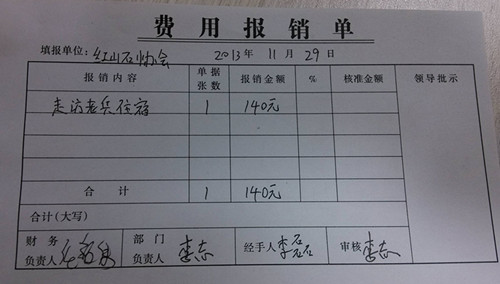 费用报销单
填报单位: 红山石协会 2013年 11月 29日
报销内容 单据张数 报销金额 % 核准金额 领导批示
走访老兵住宿 1 140元
合计 1 140元
合计(大写)
财务负责人 部门负责人 李志 经手人 李磊 审核 李志